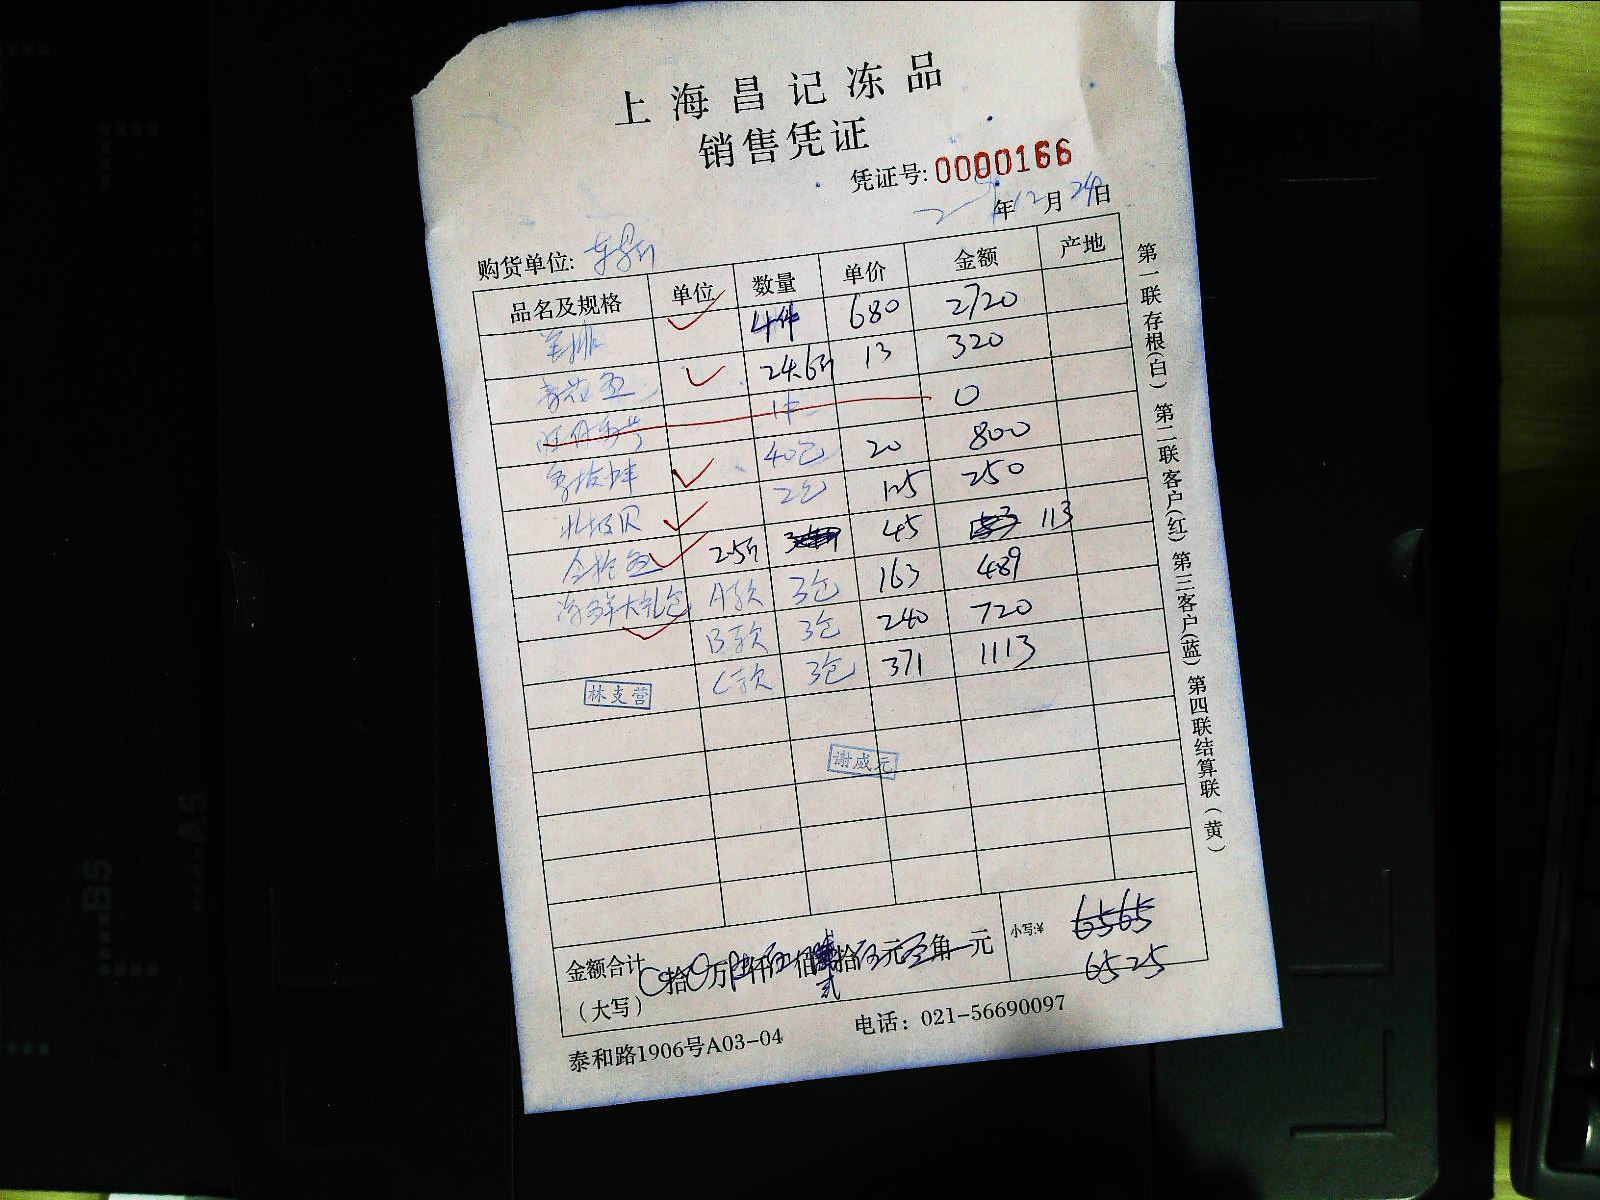 上海昌记冻品
销售凭证
凭证号: 0000166
年12月24日
购货单位:
品名及规格 单位 数量 单价 金额 产地
羊排 4件 680 2720
青花鱼 24.6斤 13 320
1件 0
40包 20 800
北极贝 2包 125 250
金枪鱼 2.5斤 45 113
海鲜大礼包 A款 3包 163 489
B款 3包 240 720
C款 3包 371 1113
林支营
谢威元
金额合计 0拾0万陆仟伍佰贰拾伍元 角 元
(大写)
小写:¥ 6565
6525
泰和路1906号A03-04 电话: 021-56690097
第一联存根(白) 第二联客户(红) 第三客户(蓝) 第四联结算联(黄)
A5
B5